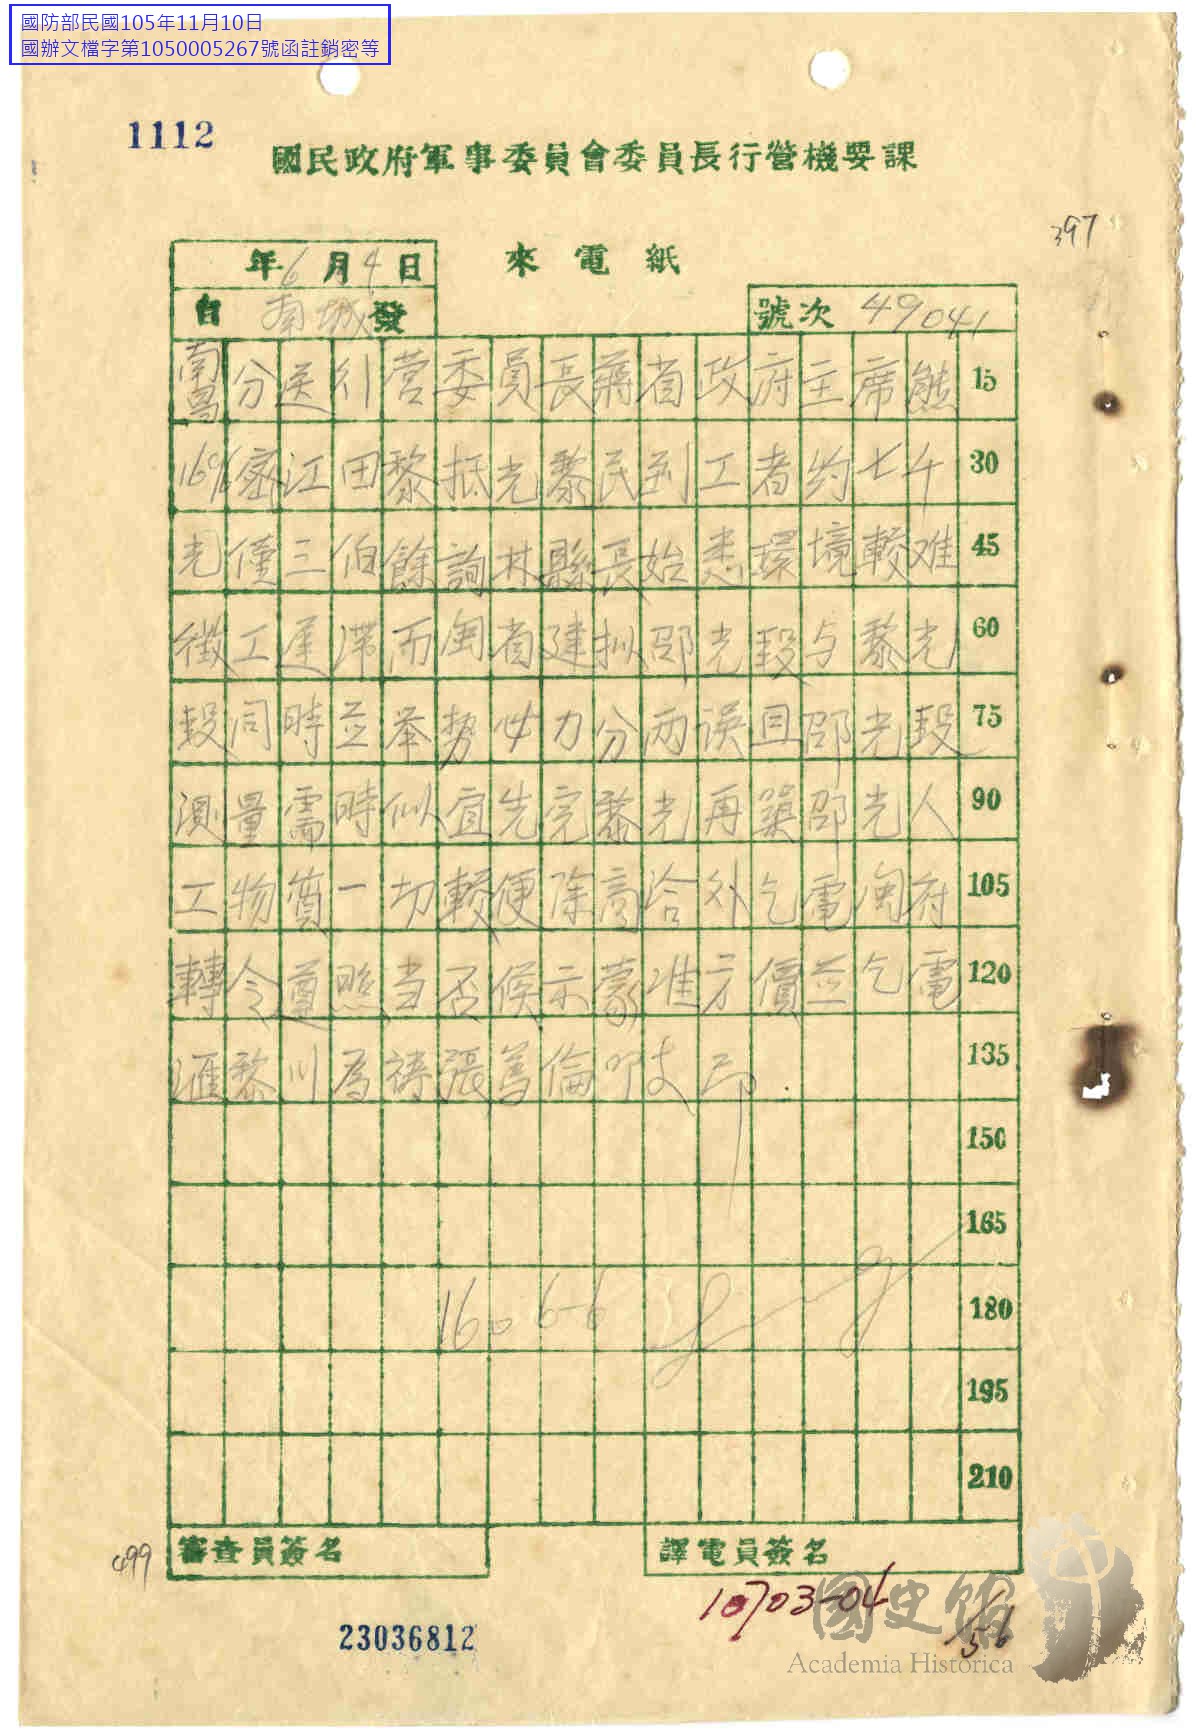 國防部民國105年11月10日
國辦文檔字第1050005267號函註銷密等
1112
國民政府軍事委員會委員長行營機要課
397
年6月4日
來電紙
自南城發
號次 49041
南昌分送行營委員長蔣省政府主席熊 15
密江田黎抵光黎民到工者約七千 30
光僅三佰餘詢林縣長始悉環境較难 45
徵工遲滞而閩省建拟邵光段与黎光 60
段同時並举勢必力分兩误且邵光段 75
測量需時似宜先完黎光再築邵光人 90
工物質一切較便除商洽外乞電閩府 105
轉令遵照当否候示蒙准方價並乞電 120
滙黎川為禱張篤倫叩支印 135
150
165
160 6-6 180
195
210
審查員簽名
譯電員簽名
499
10703-04
56
23036812
國史館
Academia Historica